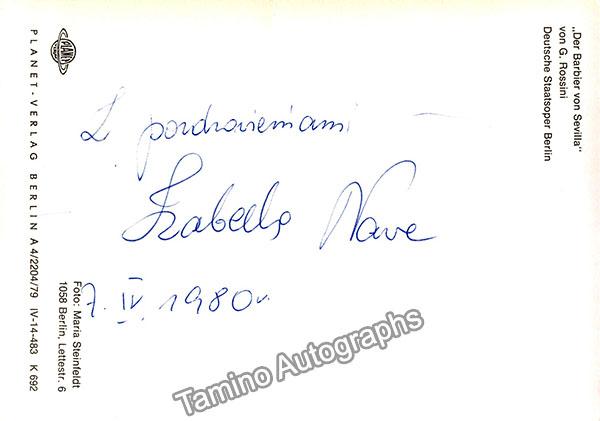 „Der Barbier von Sevilla"
von G. Rossini
Deutsche Staatsoper Berlin
Z pozdrowieniami
Izabella Nawe
7. IV. 1980 r.
Foto: Maria Steinfeldt
1058 Berlin, Lettestr. 6
PLANET-VERLAG BERLIN A 4/2204/79 IV-14-483 K 692
PLANET
Tamino Autographs